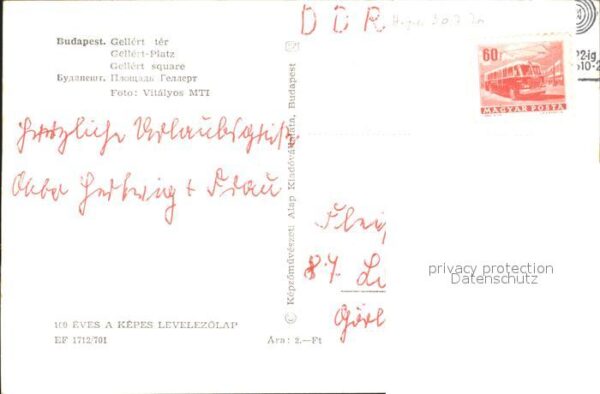 DDR
Budapest. Gellért tér
Gellért-Platz
Gellért square
Будапешт. Площадь Геллерт
Foto: Vitályos MTI
60f
MAGYAR POSTA
Herzliche Urlaubsgrüße
Hertwig + Frau
87. Le
Görl
© Képzőművészeti Alap Kiadóvállalata, Budapest
privacy protection
Datenschutz
100 ÉVES A KÉPES LEVELEZŐLAP
EF 1712/701
Ára: 2.—Ft